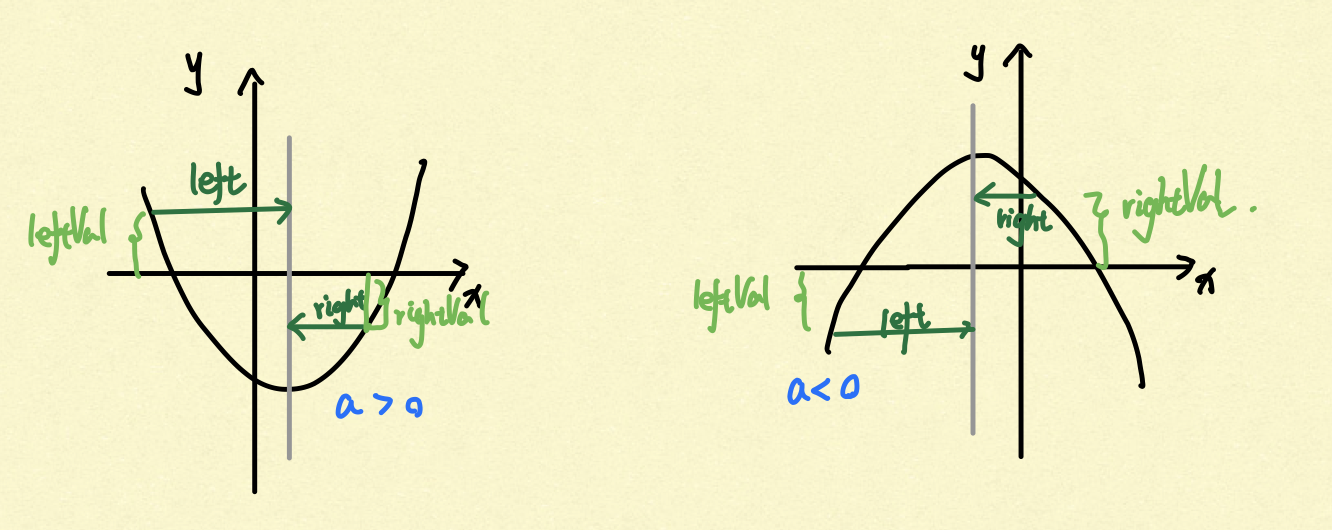 y
left
leftVal
x
right
rightVal
a > 0
y
right
rightVal.
x
leftVal
left
a < 0